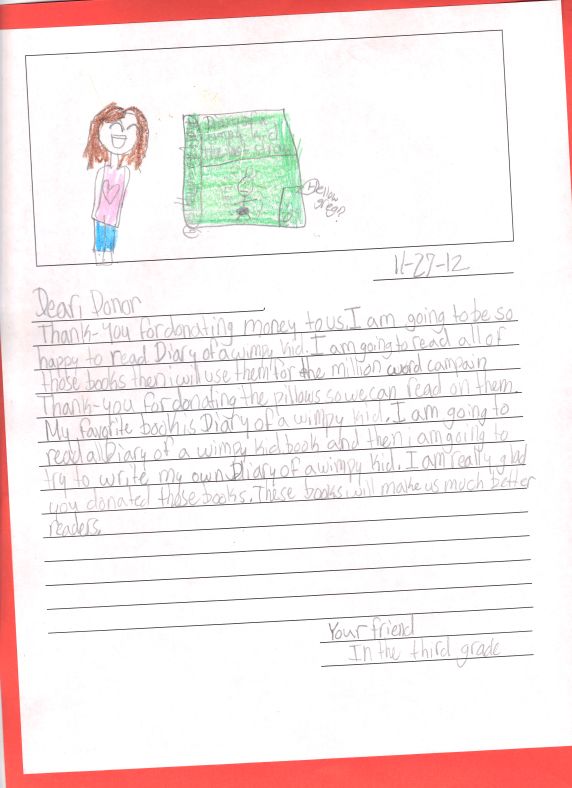 Diary of a
wimpy kid
the last straw
11-27-12
Dear, Donor
Thank-you for donating money to us. I am going to be so
happy to read Diary of a wimpy kid. I am going to read all of
those books then i will use them for the million word campain
Thank-you for donating the pillows so we can read on them.
My favorite book is Diary of a wimpy kid. I am going to
read a Diary of a wimpy kid book and then i am going to
try to write my own Diary of a wimpy kid. I am really glad
you donated those books. These books will make us much better
readers.
Your friend
In the third grade